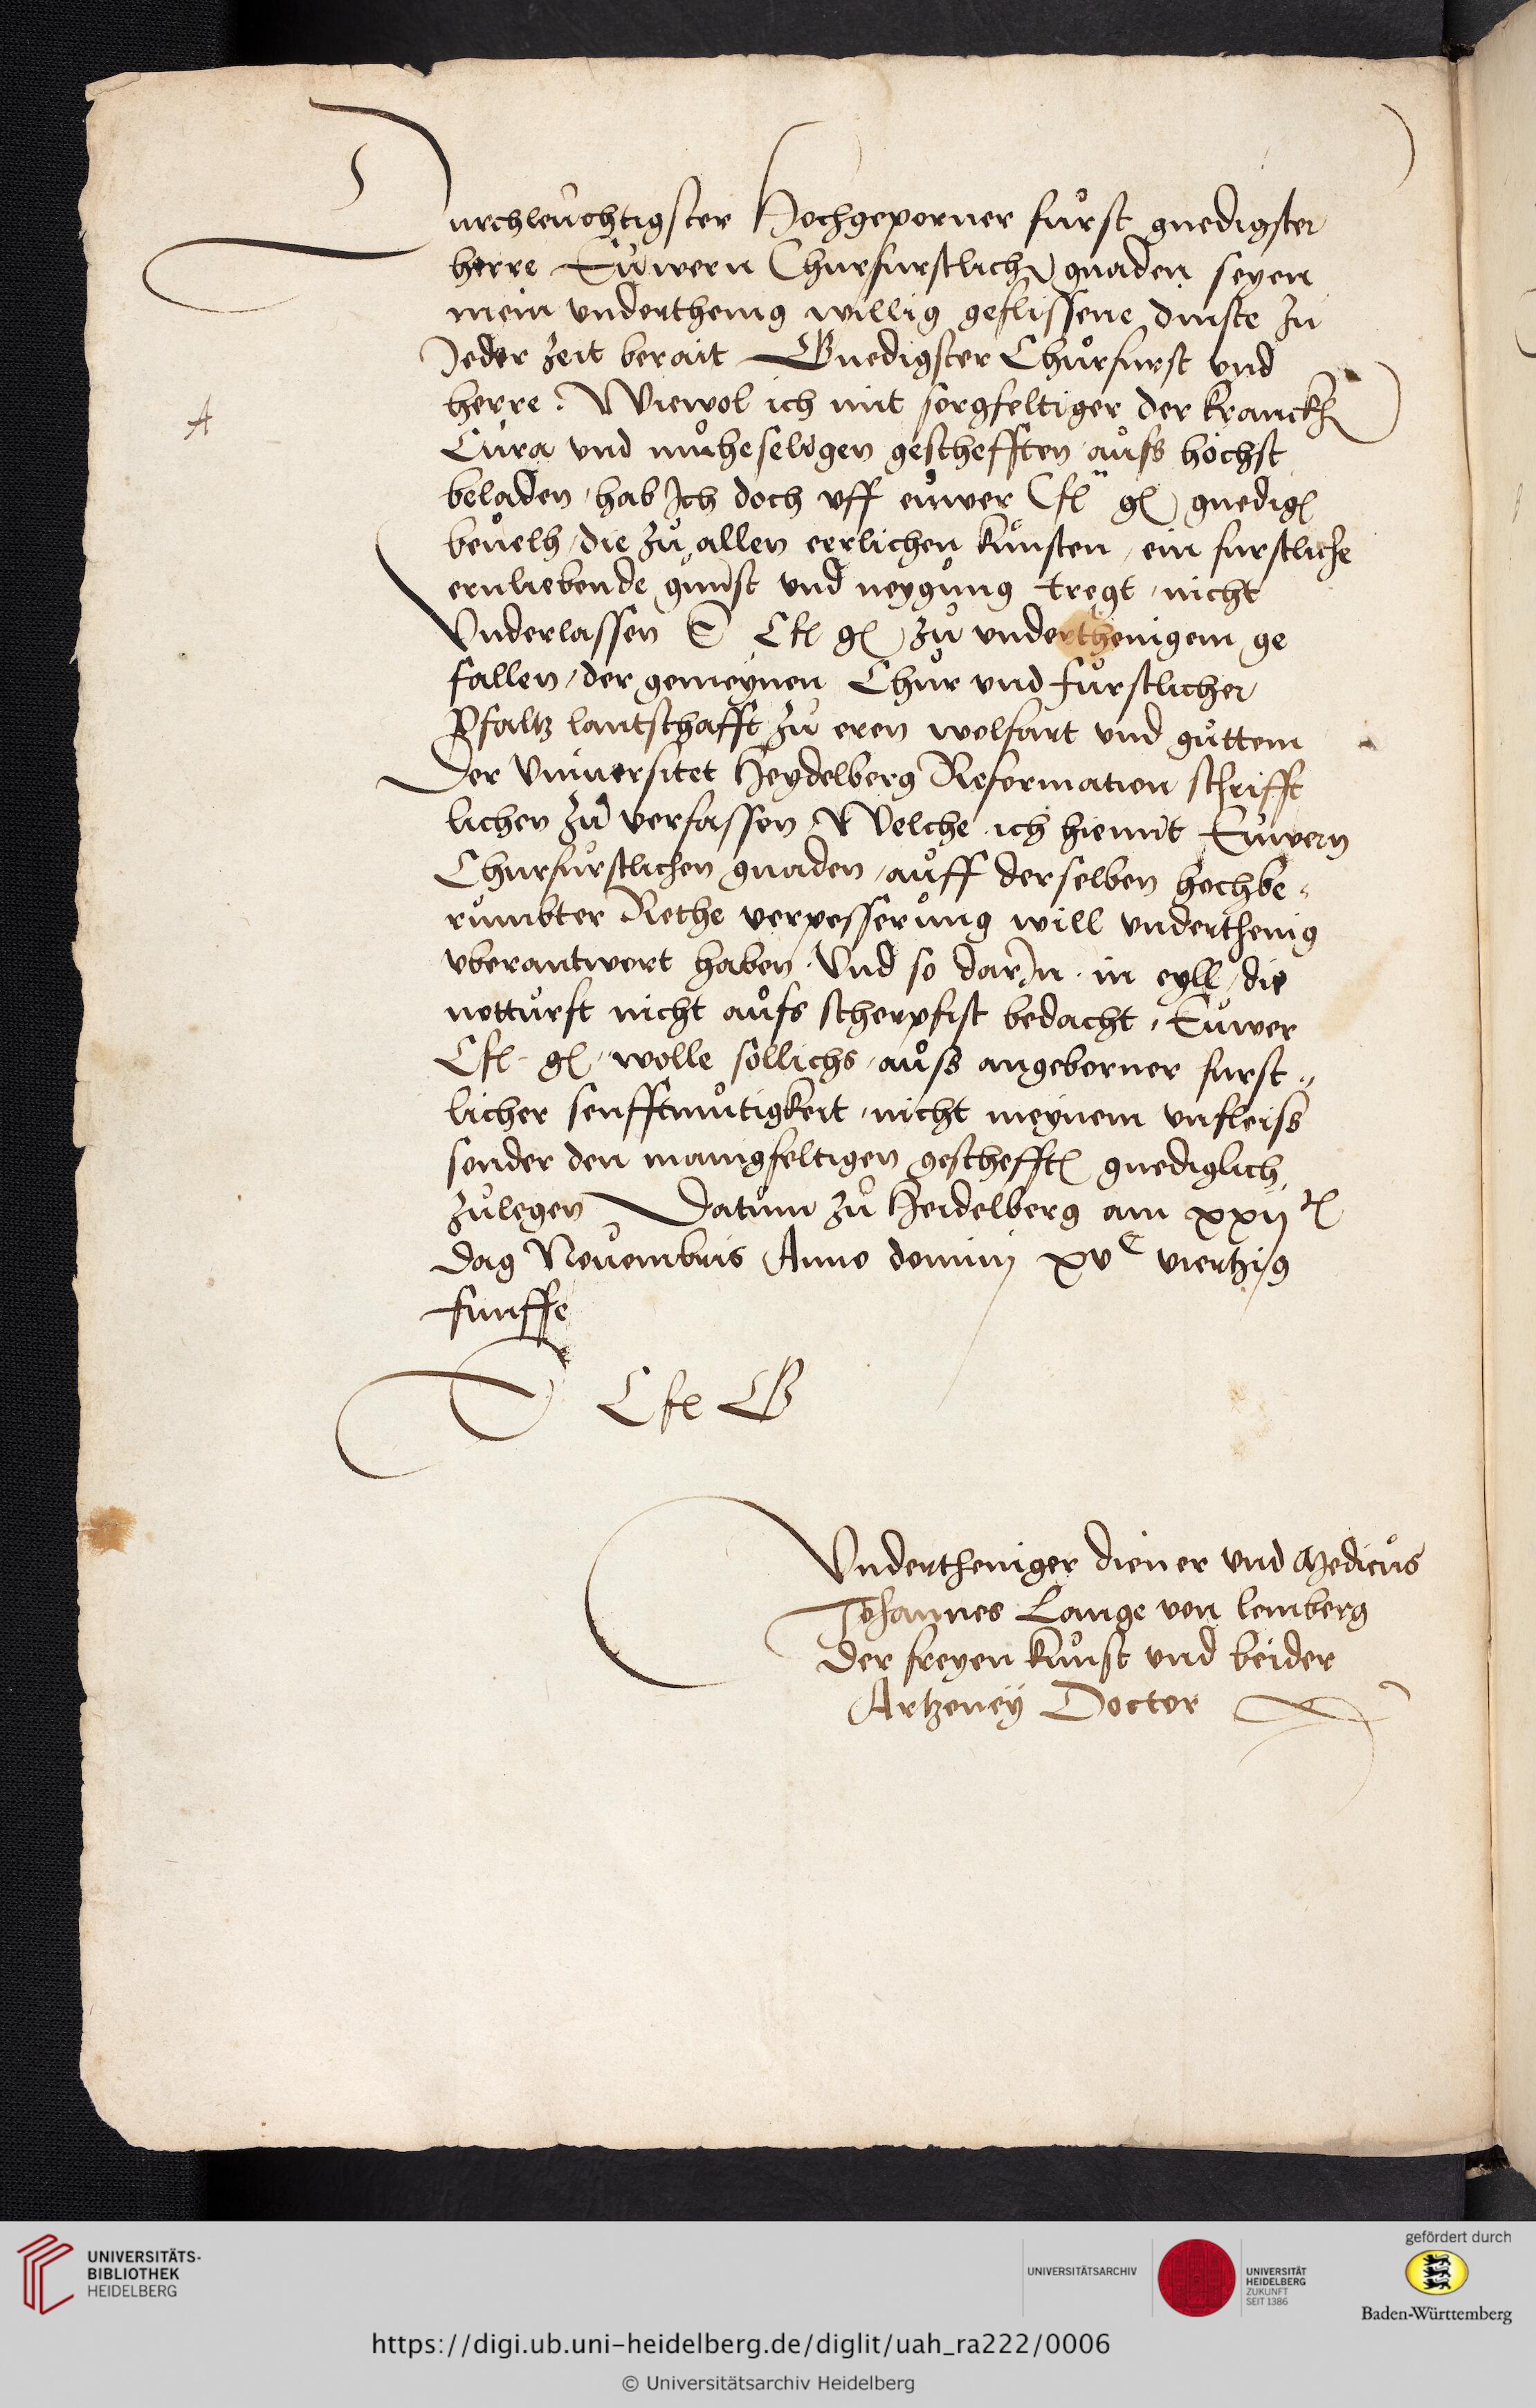 Durchleuchtigster Hochgeporner furst gnedigster
herre Euwern Churfurstlichen gnaden seyen
mein underthenig willig geflissene dinste zu
Jeder zeit berait Gnedigster Churfurst und
herre. Wiewol ich mit sorgfeltiger der kranckh
A
Cura und muheseligen geschefften aufs höchst
beladen, hab Ich doch uff euwer Cfl gl gnedigl
beuelh, die zu allen eerlichen kunsten, ein furstliche
ernliebende gunst und neygung tregt, nicht
Underlassen E Cfl gl zu underthenigem ge
fallen, der gemeynen Chur und furstlicher
Pfaltz lantschafft zu eren wolfart und guttem
Der Uniuersitet Heydelberg Reformation schrifft
lichen zu verfassen, Welche ich hiemit Euwern
Churfurstlichen gnaden, auff derselben hochbe-
rumbter Rethe verpesserung will underthenig
uberantwort haben. Und so darJn in eyll, die
notturft nicht aufs scherpfist bedacht, Euwer
Cfl gl, wolle söllichs, auss angeborner furst-
licher senfftmutigkeit, nicht meynem unfleiss
sonder den manigfeltigen geschefftl gnediglich
zulegen Datum zu Heidelberg am xxij
dag Nouembris Anno domini xvc viertzig
funffe
E Cfl G
Undertheniger diener und Medicus
Johannes Lange von lemberg
der freyen kunst und beider
Artzeney Doctor
UNIVERSITÄTS-
BIBLIOTHEK
HEIDELBERG
UNIVERSITÄTSARCHIV
UNIVERSITÄT
HEIDELBERG
ZUKUNFT
SEIT 1386
gefördert durch
Baden-Württemberg
https://digi.ub.uni-heidelberg.de/diglit/uah_ra222/0006
© Universitätsarchiv Heidelberg